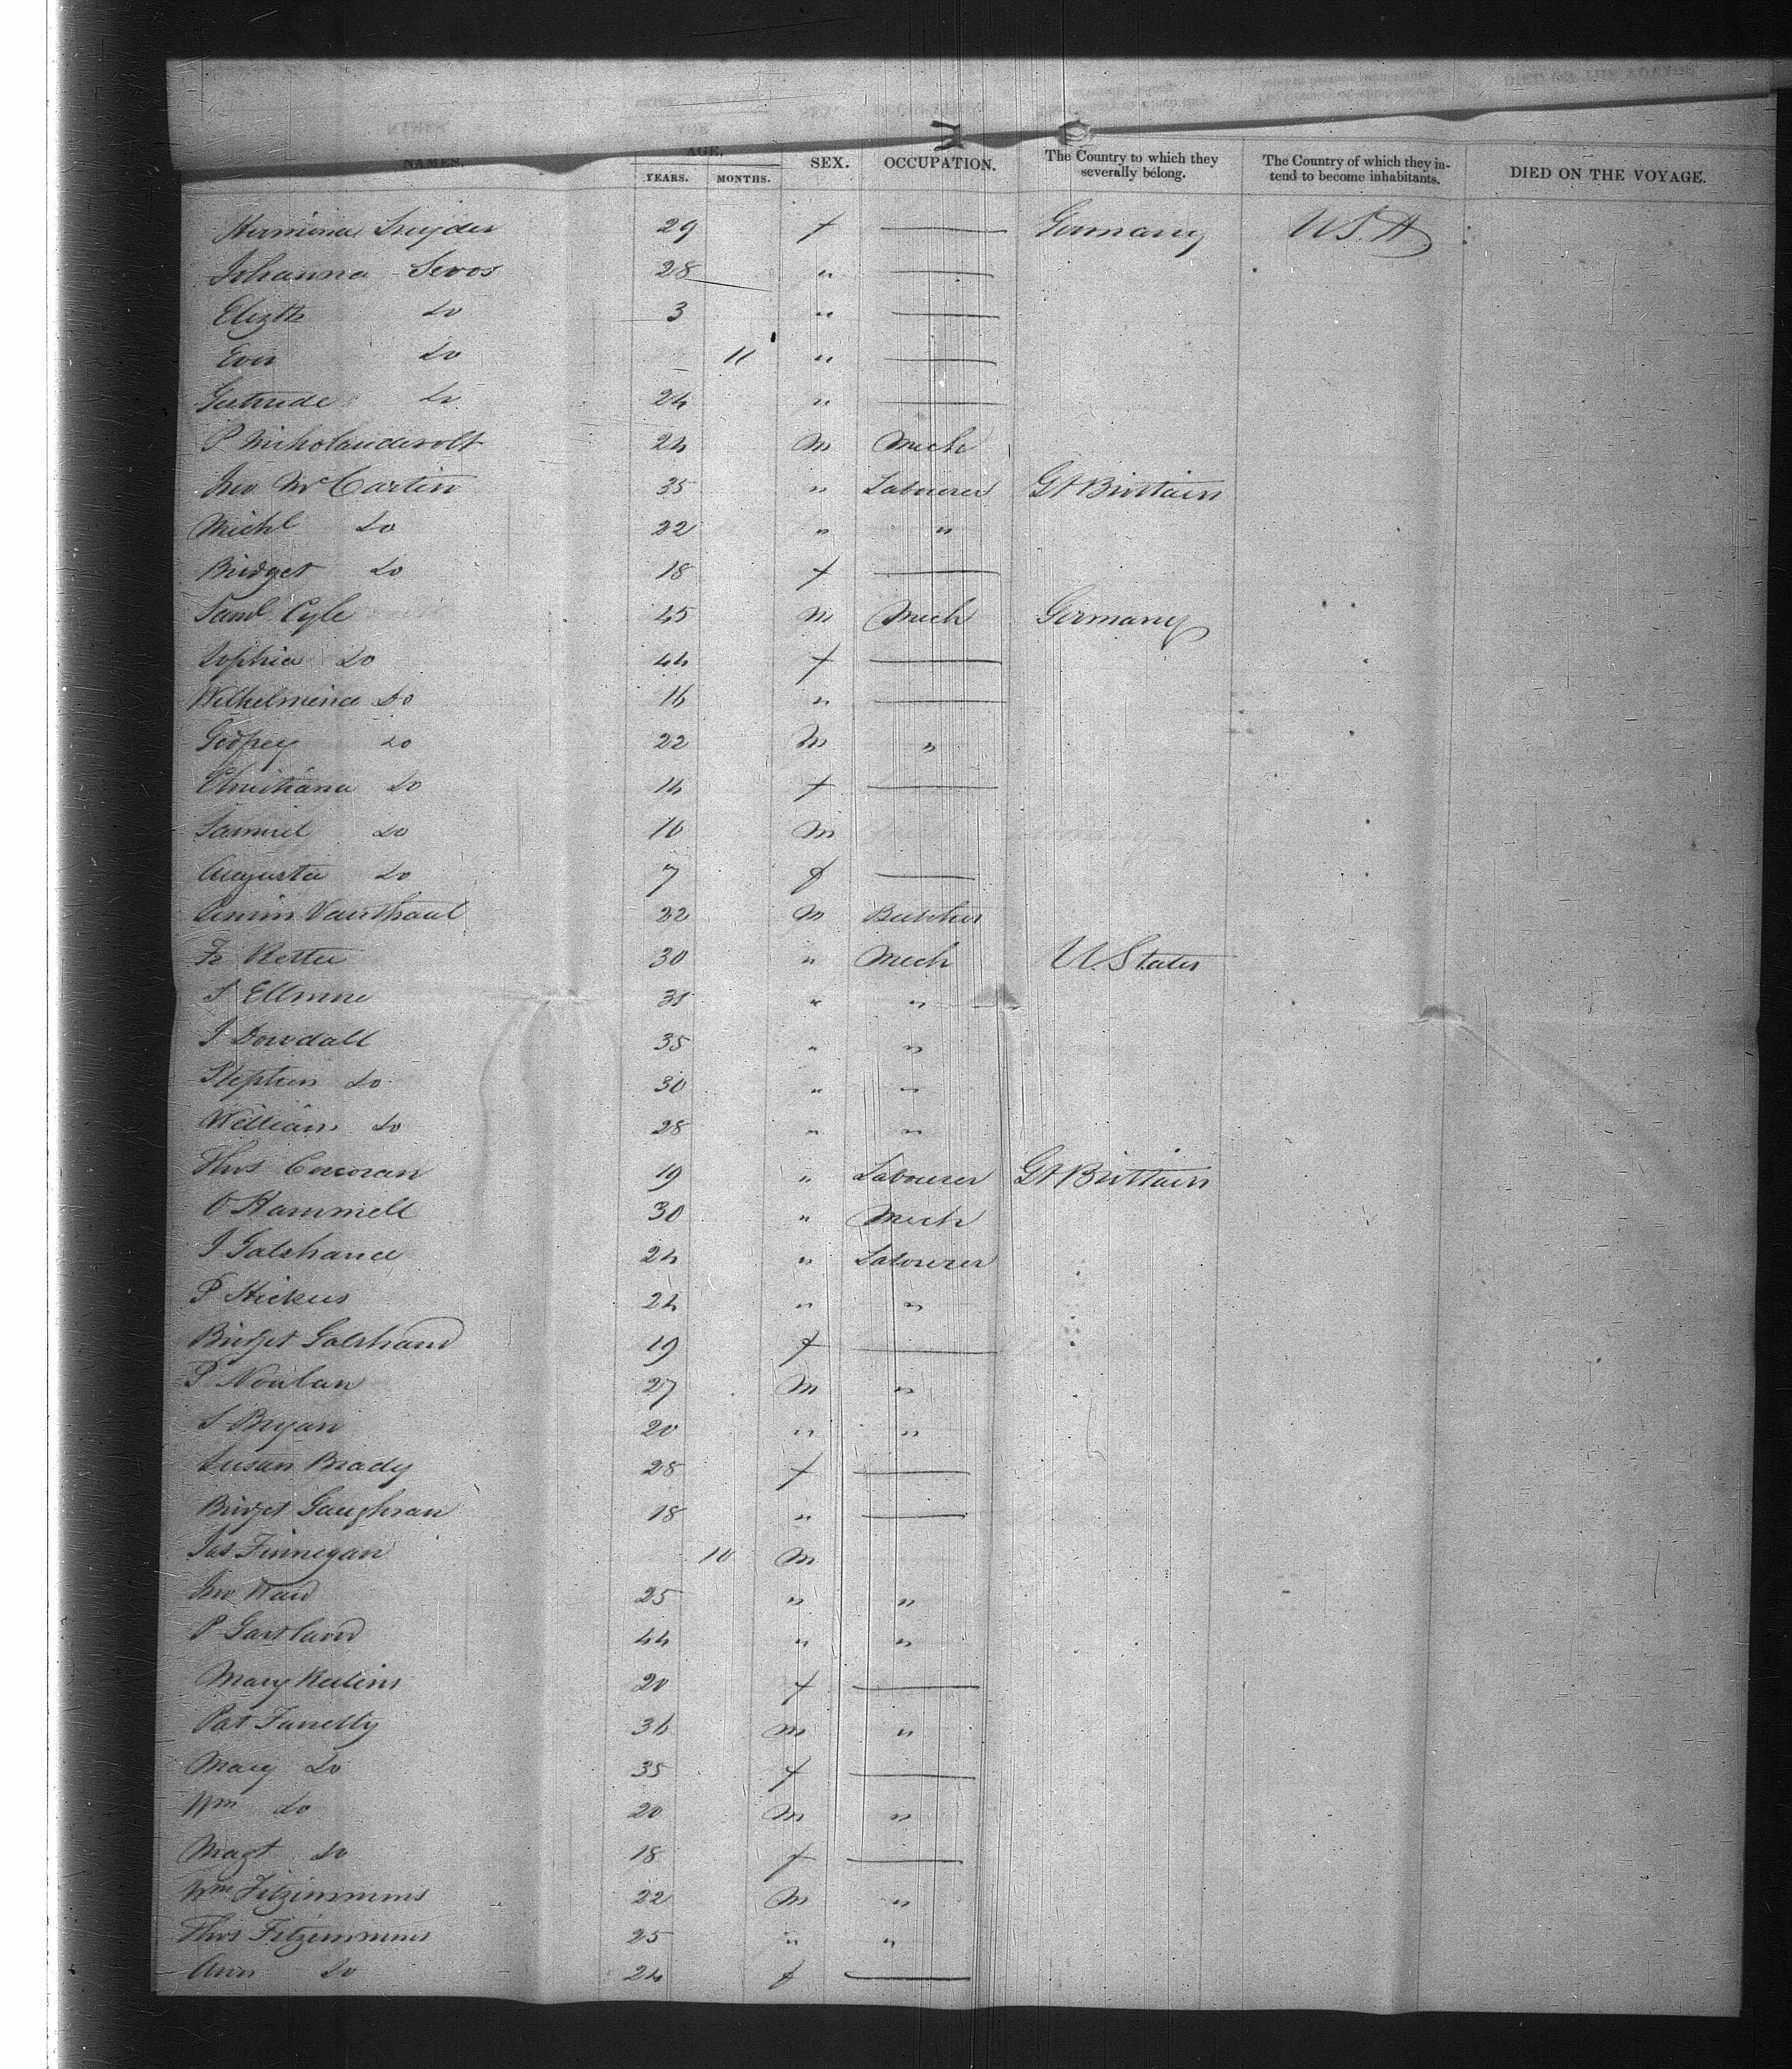 NAMES. AGE. YEARS. MONTHS. SEX. OCCUPATION. The Country to which they severally belong. The Country of which they intend to become inhabitants. DIED ON THE VOYAGE.
Hermina Snyder 29 f — Germany U.S.A
Johanna Sevos 28 " —
Elizth Do 3 " —
Do 11 " —
Gertrude Do 24 " —
P 24 M Mech
Jno McCartin 35 " Labourer Gt Brittain
Michl Do 22 " "
Bridget Do 18 f —
Saml Cyle 45 M Mech Germany
Sophia Do 44 f —
Wilhelmina Do 16 " —
Godfrey Do 22 M "
Christiana Do 14 f —
Samuel Do 10 M
Augusta Do 7 f —
22 M Butcher
Fr 30 " Mech U. States
" "
J Dowdall 35 " "
Stephen Do 30 " "
William Do 28 " "
Thos Corcoran 19 " Labourer Gt Brittain
O Hammell 30 " Mech
J 24 " Labourer
P Hickes 24 " "
Bridget 19 f —
P Noulan 27 M "
S Bryan 20 " "
Susan Brady 28 f —
Bridget Gaughran 18 " —
Jas Finnegan 10 M
Jno Ward 25 " "
P Gartland 44 " "
Mary 20 f —
Pat 36 M "
Mary Do 35 f —
Wm Do 20 M "
Magt Do 18 f —
Wm Fitzimmins 22 M "
Thos Fitzimmins 25 " "
Ann Do 24 f —